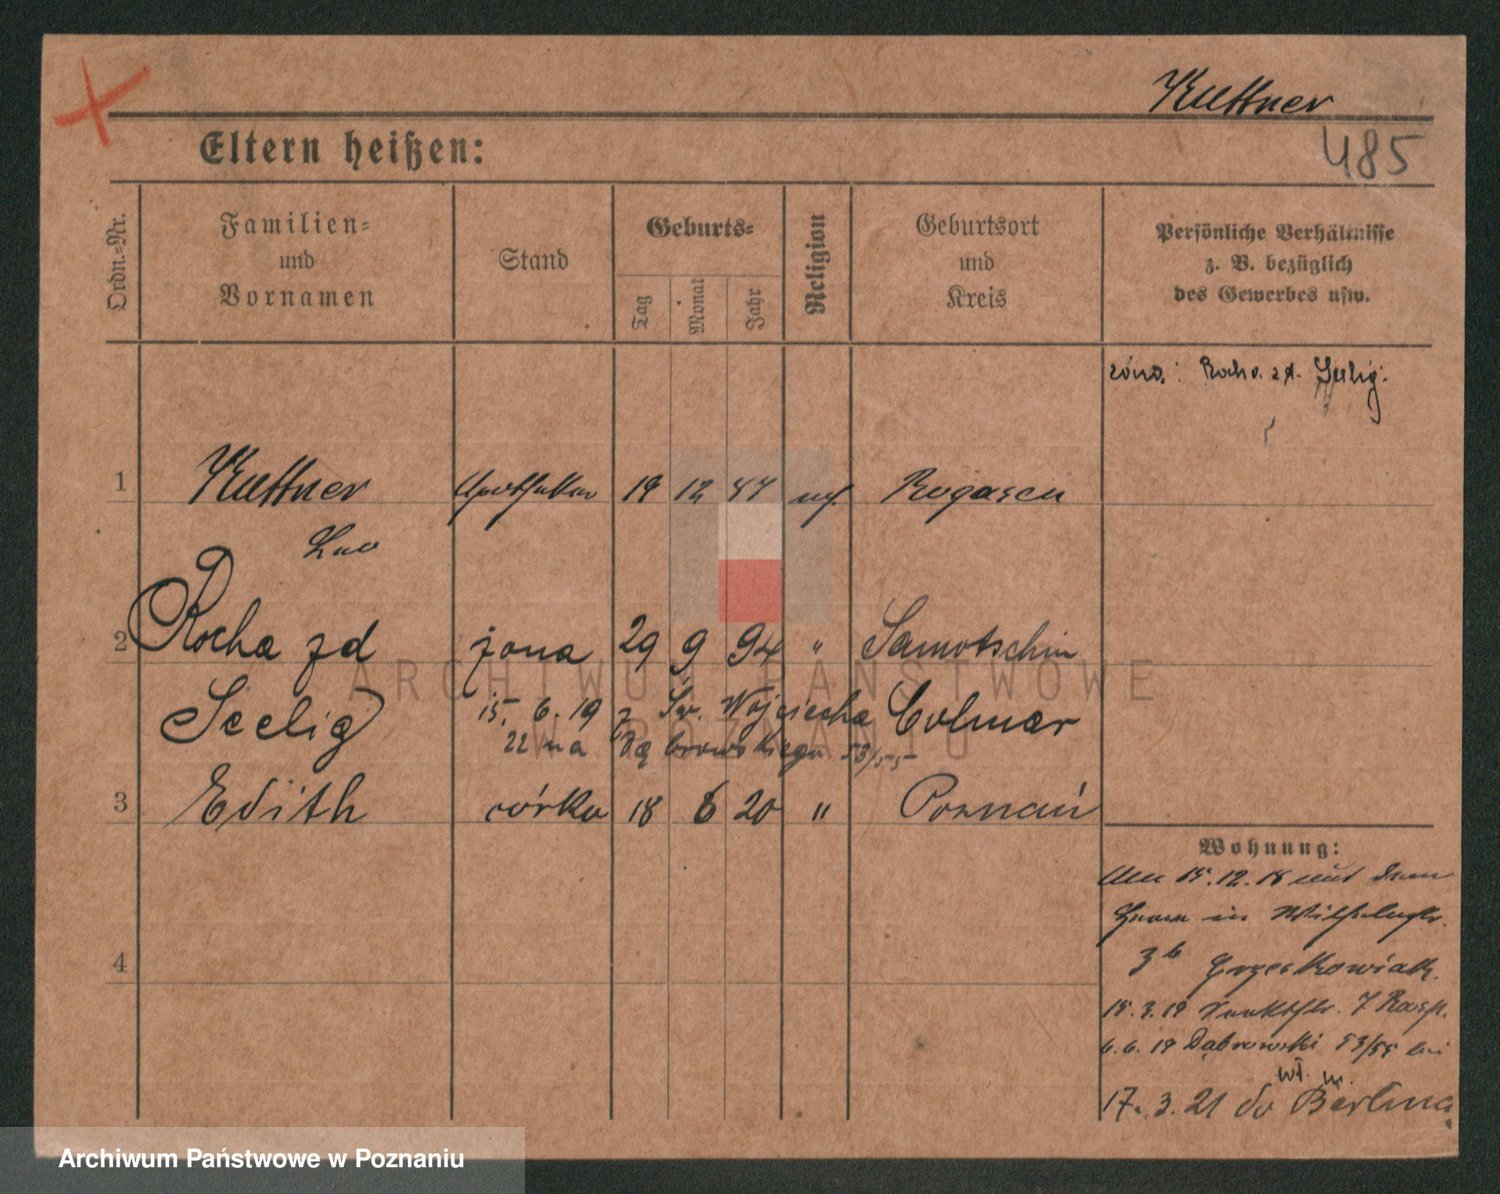 Kuttner
Eltern heißen:
485
Ordn.-Nr.
Familien-
und
Vornamen
Stand
Geburts-
Tag
Monat
Jahr
Religion
Geburtsort
und
Kreis
Persönliche Verhältnisse
z. B. bezüglich
des Gewerbes usw.
zd. Seelig.
1 Kuttner Apotheker 19 12 Rogasen
Leo
2 Rocha zd żona 29 9 94 " Samotschin
Seelig 15. 6. 19 z Św. Wojciecha Colmar
22 na Dąbrowskiego 53/55
3 Edith córka 18 6 20 " Poznań
4
Wohnung:
15.12.18
in
Grzeskowiak.
15.3.19 7
6.6.19 Dąbrowski 53/55 bei
17. 3. 21 do Berlina
ARCHIWUM PAŃSTWOWE
W POZNANIU
Archiwum Państwowe w Poznaniu